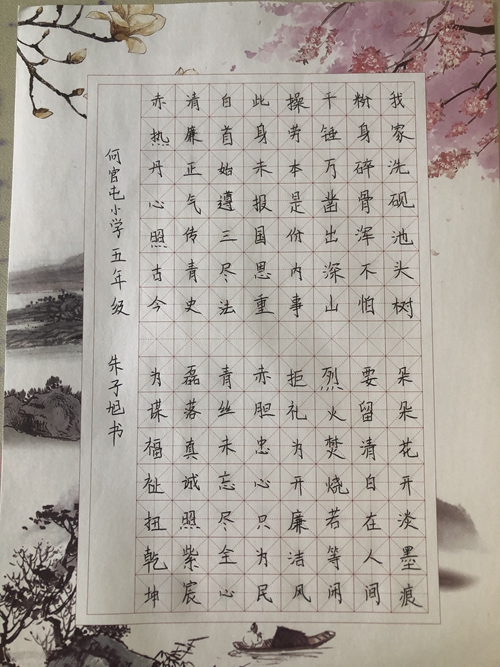 我家洗砚池头树 朵朵花开淡墨痕
粉身碎骨浑不怕 要留清白在人间
千锤万凿出深山 烈火焚烧若等闲
操劳本是份内事 拒礼为开廉洁风
此身未报国恩重 赤胆忠心只为民
白首始遵三尽法 青丝未忘尽全心
清廉正气传青史 磊落真诚照紫宸
赤热丹心照古今 为谋福祉扭乾坤
何官屯小学 五年级 朱子旭书